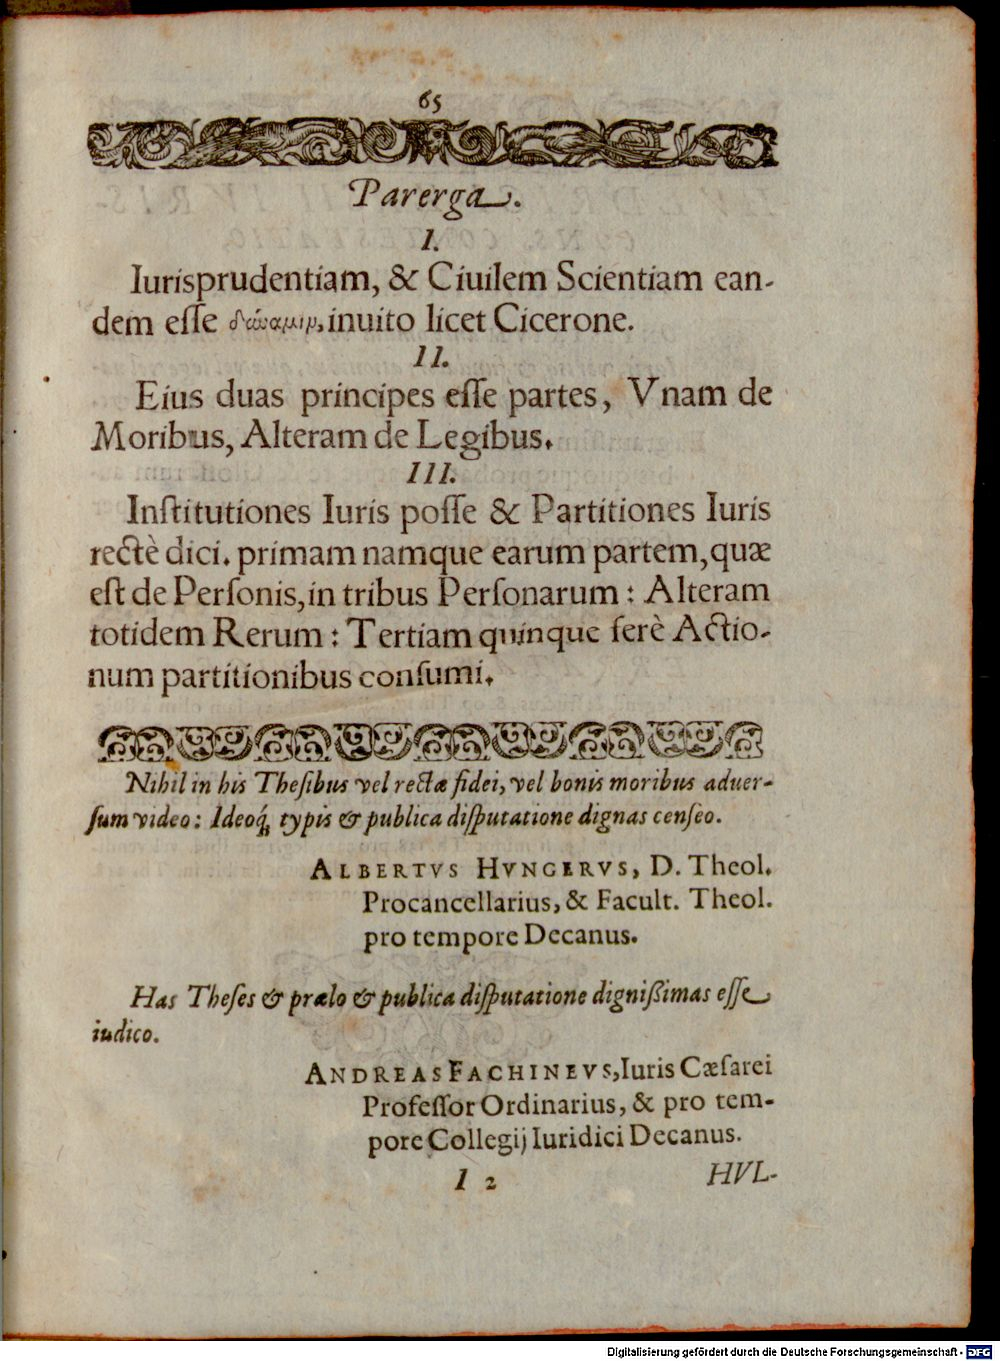 65
Parerga.
I.
Iurisprudentiam, & Ciuilem Scientiam ean-
dem esse δύναμιν, inuito licet Cicerone.
II.
Eius duas principes esse partes, Vnam de
Moribus, Alteram de Legibus.
III.
Institutiones Iuris posse & Partitiones Iuris
rectè dici. primam namque earum partem, quæ
est de Personis, in tribus Personarum: Alteram
totidem Rerum: Tertiam quinque ferè Actio-
num partitionibus consumi.
Nihil in his Thesibus vel rectæ fidei, vel bonis moribus aduer-
sum video: Ideoq́, typis & publica disputatione dignas censeo.
ALBERTVS HVNGERVS, D. Theol.
Procancellarius, & Facult. Theol.
pro tempore Decanus.
Has Theses & prælo & publica disputatione dignißimas esse
iudico.
ANDREAS FACHINEVS, Iuris Cæsarei
Professor Ordinarius, & pro tem-
pore Collegij Iuridici Decanus.
I 2 HVL-
Digitalisierung gefördert durch die Deutsche Forschungsgemeinschaft - DFG